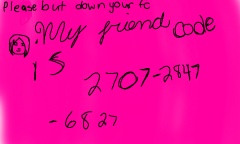 Please but down your fc
My friend code
is
2707-2847
-6827